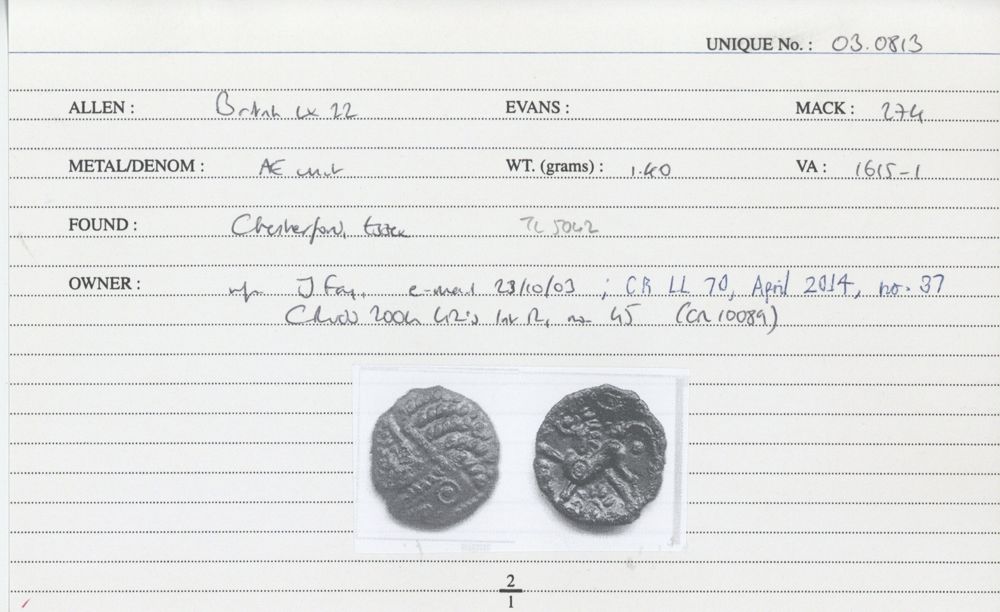 UNIQUE No. : 03.0813
ALLEN : British LX 22 EVANS : MACK : 274
METAL/DENOM : AE unit WT. (grams) : 1.40 VA : 1615-1
FOUND : Chesterford, Essex TL 5042
OWNER : J. Fay, e-mail 23/10/03 ; CR LL 70, April 2014, no. 37
no 45 (CR 10089)
2
1